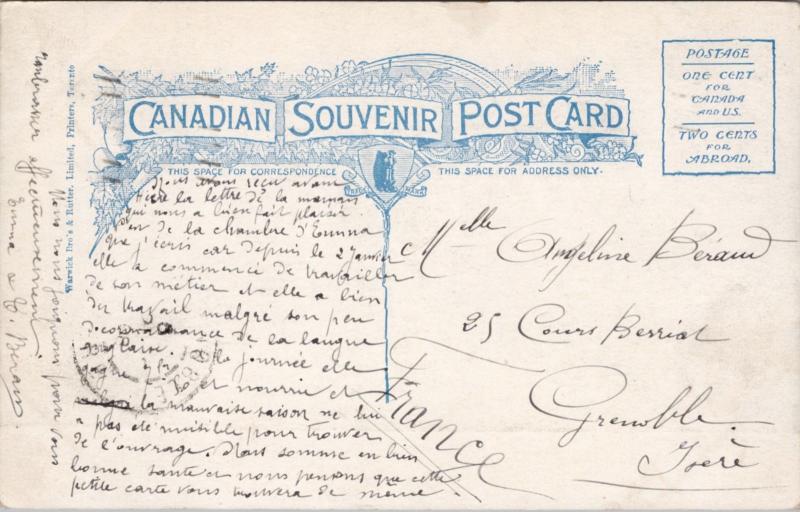 CANADIAN SOUVENIR POST CARD
THIS SPACE FOR CORRESPONDENCE
THIS SPACE FOR ADDRESS ONLY.
POSTAGE
ONE CENT
FOR
CANADA
AND U.S.
TWO CENTS
FOR
ABROAD.
Warwick Bro's & Rutter, Limited, Printers, Toronto
Nous avons reçu avant
hier la lettre de la maman
qui nous a bien fait plaisir.
est de la chambre d'Emma
que j'écris car depuis le 2 Janvier
elle a commencé de travailler
de son métier et elle a bien
du travail malgré son peu
de connaissance de la langue
anglaise. la journée elle
gagne et nourrie et
la mauvaise saison ne lui
a pas été nuisible pour trouver
de l'ouvrage. Nous somme en bien
bonne santé et nous pensons que cette
petite carte vous trouvera de même.
Nous nous joignons pour vous
embrasser affectueusement.
Emma & C. Béraud
Melle Angeline Béraud
25 Cours Berriat
Grenoble
Isère
FRANCE